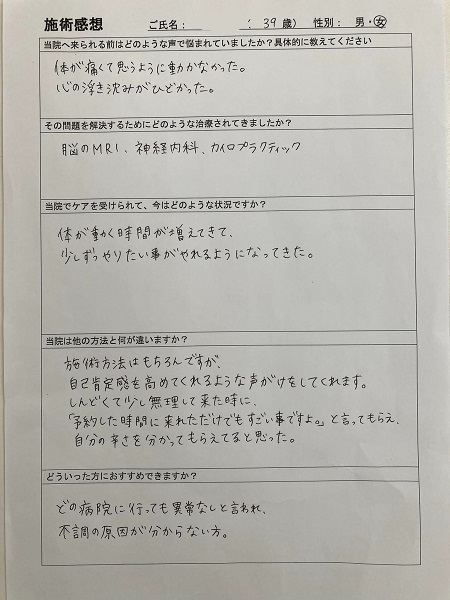 施術感想 ご氏名： : 39歳） 性別： 男・女
当院へ来られる前はどのような声で悩まれていましたか？具体的に教えてください
体が痛くて思うように動かなかった。
心の浮き沈みがひどかった。
その問題を解決するためにどのような治療されてきましたか？
脳のMRI、神経内科、カイロプラクティック
当院でケアを受けられて、今はどのような状況ですか？
体が動く時間が増えてきて、
少しずつやりたい事がやれるようになってきた。
当院は他の方法と何が違いますか？
施術方法はもちろんですが、
自己肯定感を高めてくれるような声がけをしてくれます。
しんどくて少し無理して来た時に、
「予約した時間に来れただけでもすごい事ですよ。」と言ってもらえ、
自分の辛さを分かってもらえてると思った。
どういった方におすすめできますか？
どの病院に行っても異常なしと言われ、
不調の原因が分からない方。